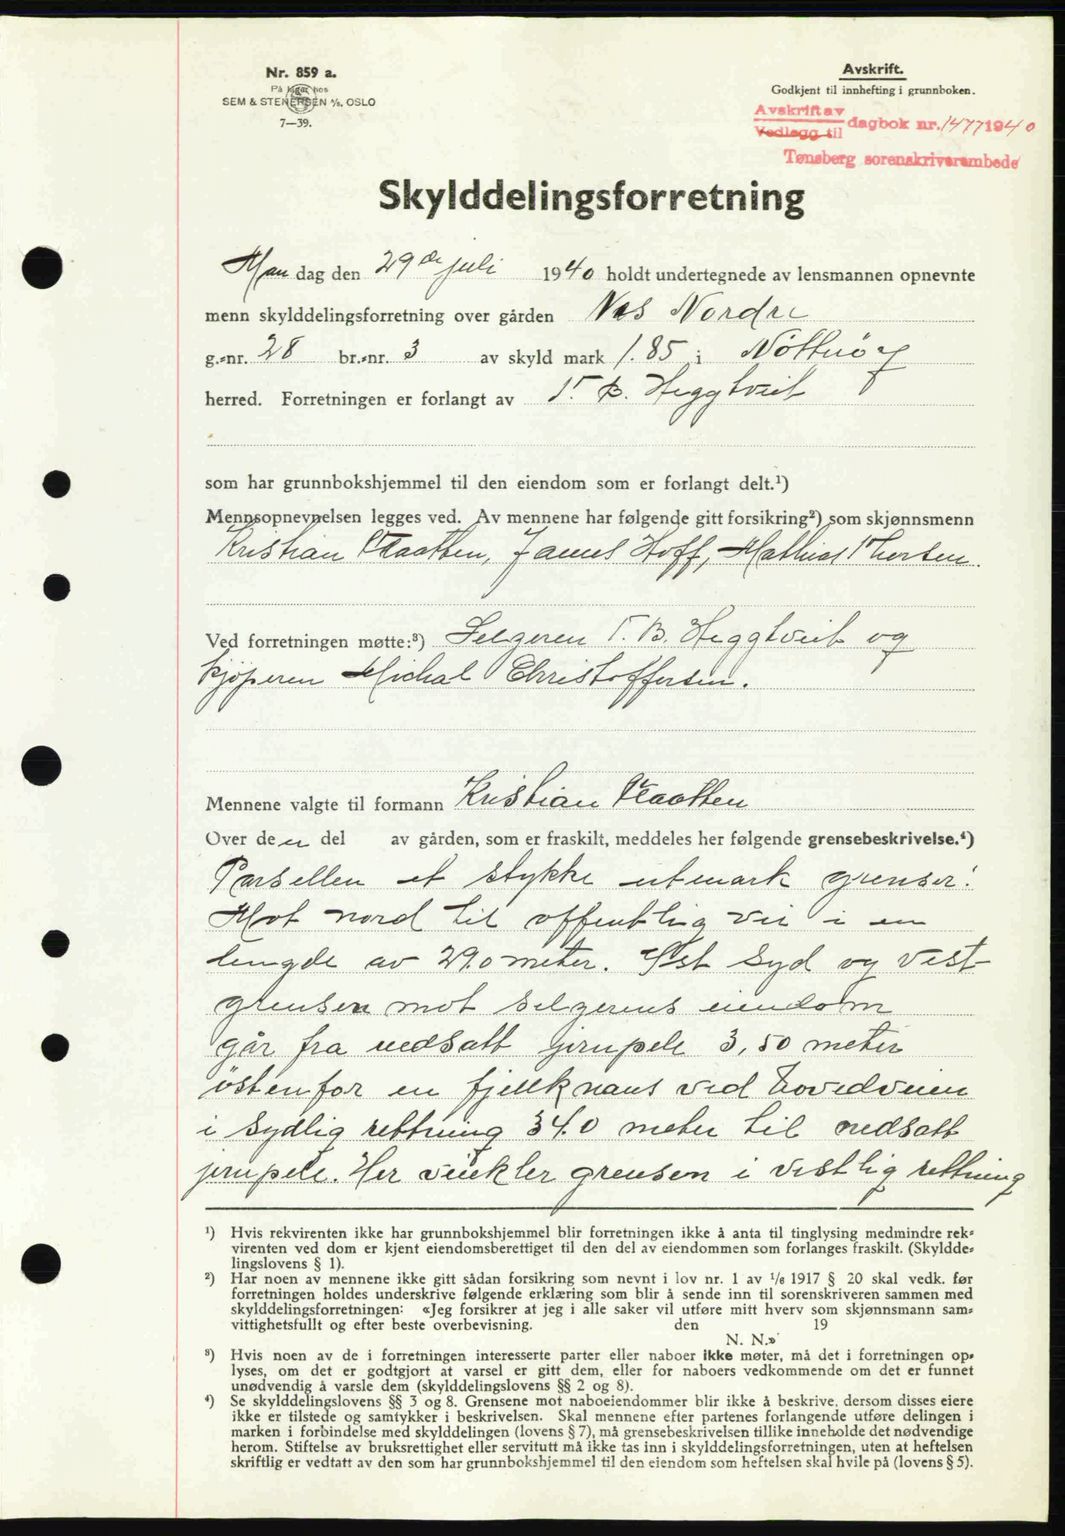 Nr. 859 a.
På lager hos
SEM & STENERSEN A/S, OSLO
7—39.
Avskrift.
Godkjent til innhefting i grunnboken.
Avskrift av
Vedlegg til
dagbok nr. 1477 1940
Tønsberg sorenskriverembede
Skylddelingsforretning
Man dag den 29de juli 1940 holdt undertegnede av lensmannen opnevnte
menn skylddelingsforretning over gården Nes Nordre
g.-nr. 28 br.-nr. 3 av skyld mark 1.85 i Nøtterøy
herred. Forretningen er forlangt av T. B. Heggtveit
som har grunnbokshjemmel til den eiendom som er forlangt delt.¹)
Mennsopnevnelsen legges ved. Av mennene har følgende gitt forsikring²) som skjønnsmenn
Kristian Plaatten, James Hoff, Mathias Thorsen.
Ved forretningen møtte:³) Selgeren T. B. Heggtveit og
kjøperen Michal Christoffersen.
Mennene valgte til formann Kristian Plaatten
Over den del av gården, som er fraskilt, meddeles her følgende grensebeskrivelse.⁴)
Parsellen et stykke utmark grenser:
Mot nord til offentlig vei i en
lengde av 29.0 meter. Øst Syd og Vest
grensen mot selgerens eiendom
går fra nedsatt jernpele 3,50 meter
østenfor en fjellknaus ved hovedveien
i Sydlig rettning 34.0 meter til nedsatt
jernpele. Her vinkler grensen i vestlig rettning
¹) Hvis rekvirenten ikke har grunnbokshjemmel blir forretningen ikke å anta til tinglysing medmindre rek-
virenten ved dom er kjent eiendomsberettiget til den del av eiendommen som forlanges fraskilt. (Skyldde-
lingslovens § 1).
²) Har noen av mennene ikke gitt sådan forsikring som nevnt i lov nr. 1 av 1/6 1917 § 20 skal vedk. før
forretningen holdes underskrive følgende erklæring som blir å sende inn til sorenskriveren sammen med
skylddelingsforretningen: «Jeg forsikrer at jeg i alle saker vil utføre mitt hverv som skjønnsmann sam-
vittighetsfullt og efter beste overbevisning. den 19
N. N.»
³) Hvis noen av de i forretningen interesserte parter eller naboer ikke møter, må det i forretningen op-
lyses, om det er godtgjort at varsel er gitt dem, eller for naboers vedkommende om det er funnet
unødvendig å varsle dem (skylddelingslovens §§ 2 og 8).
⁴) Se skylddelingslovens §§ 3 og 8. Grensene mot naboeiendommer blir ikke å beskrive, dersom disses eiere
ikke er tilstede og samtykker i beskrivelsen. Skal mennene efter partenes forlangende utføre delingen i
marken i forbindelse med skylddelingen (lovens § 7), må grensebeskrivelsen tillike inneholde det nødvendige
herom. Stiftelse av bruksrettighet eller servitutt må ikke tas inn i skylddelingsforretningen, uten at heftelsen
skriftlig er vedtatt av den som har grunnbokshjemmel til den eiendom som heftelsen skal hvile på (lovens § 5).